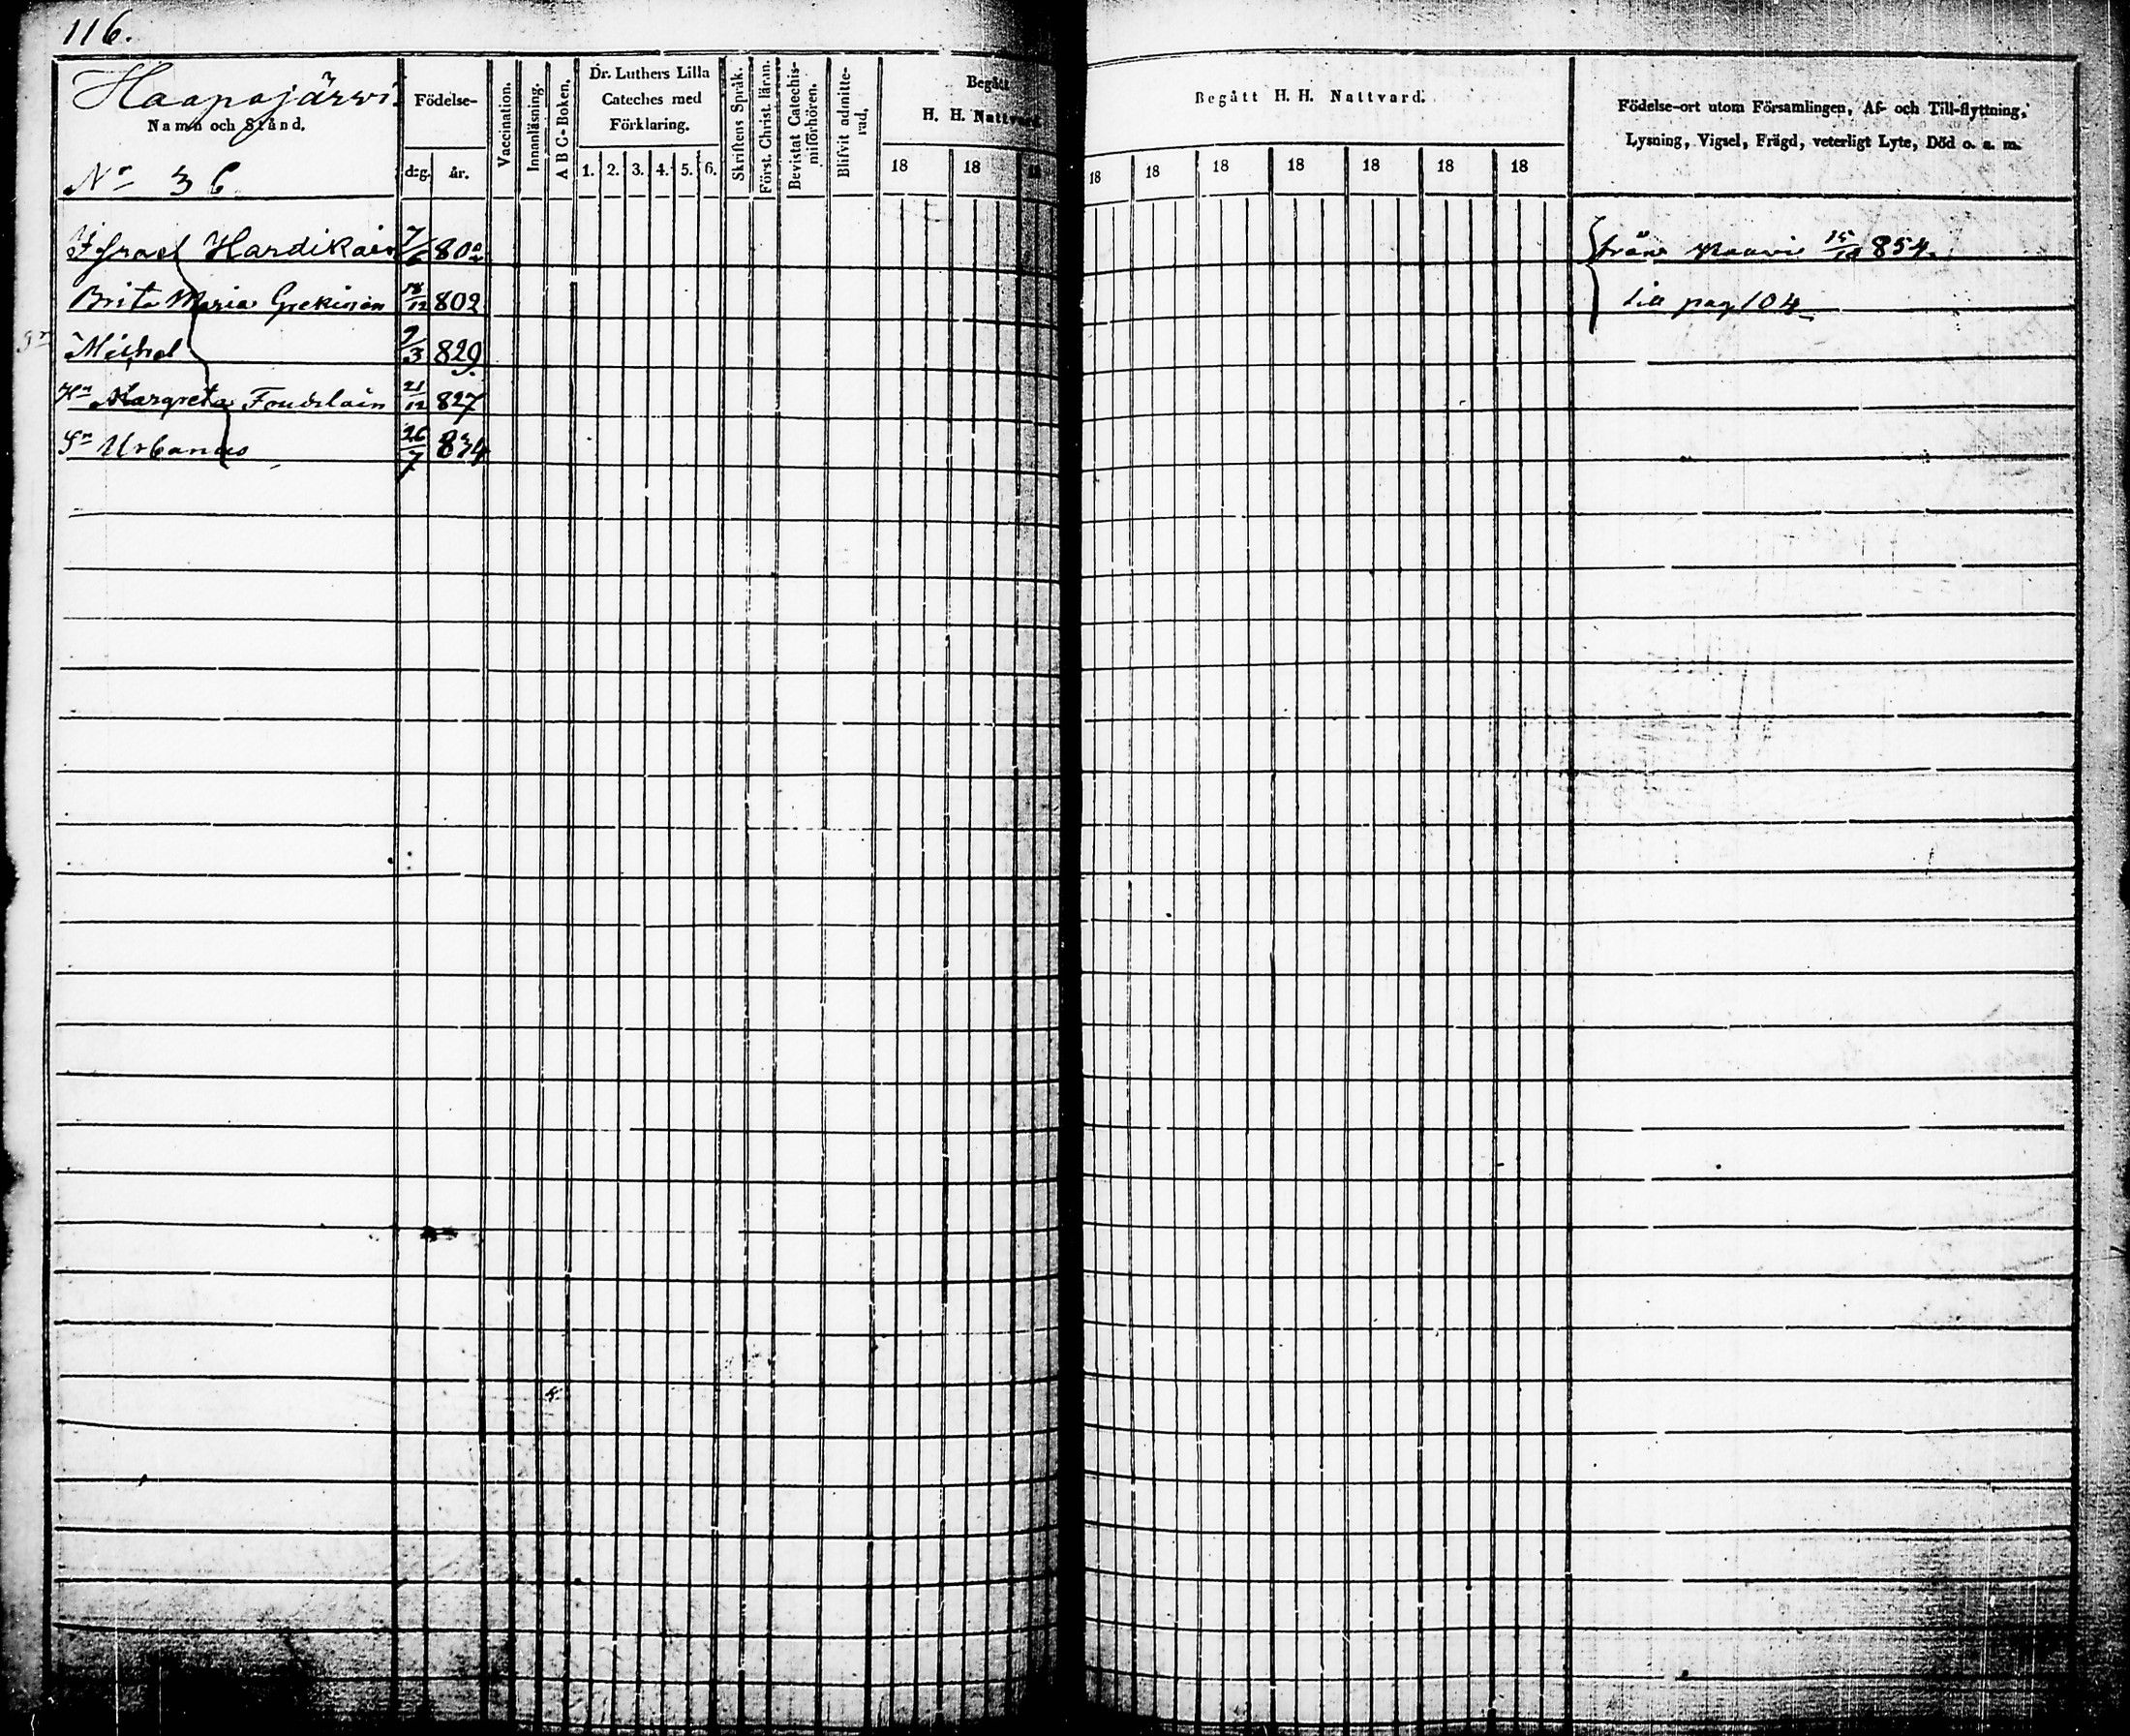 116.
Haapajärwi
Namn och Stånd.
No 36
Födelse-
dag. år.
Vaccination.
Innanläsning.
A B C-Boken.
Dr. Luthers Lilla
Cateches med
Förklaring.
1. 2. 3. 4. 5. 6.
Skriftens Språk.
Först. Christ. läran.
Bevistat Catechis-
miiförhören.
Blifvit admitte-
rad.
Begått
H. H. Nattvard
18 18 18
Begått H. H. Nattvard.
18 18 18 18 18 18 18
Födelse-ort utom Församlingen, Af- och Till-flyttning,
Lysning, Vigsel, Frägd, veterligt Lyte, Död o. a. m.
Israel Hardikain 7/6 802 från 15/10 854.
Brita Maria 18/12 802 till pag 104
Sn Michel 9/3 829
Hn Margreta 21/12 827
Sn Urbanus 26/7 834